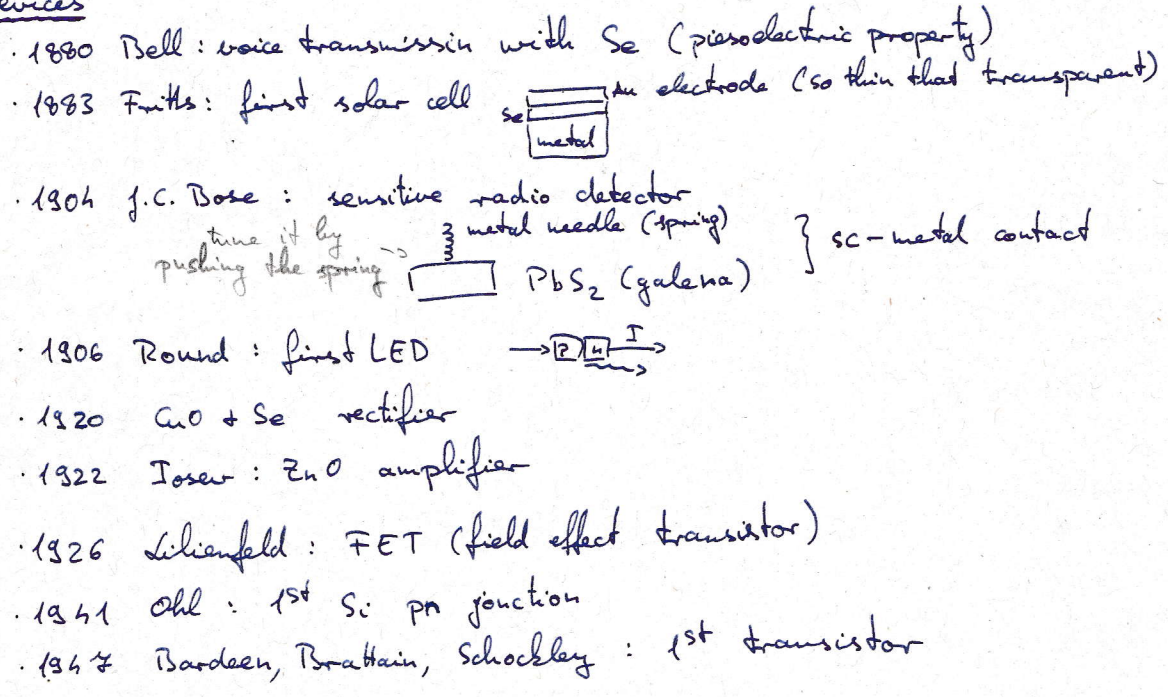 evices
· 1880 Bell : voice transmissin with Se (piesoelectric property)
· 1883 Fritts : first solar cell Se metal Au electrode (so thin that transparent)
· 1904 J.C. Bose : sensitive radio detector
metal needle (spring) } sc-metal contact
tune it by
pushing the spring -> PbS2 (galena)
· 1906 Round : first LED P n I
· 1920 CuO + Se rectifier
· 1922 Iosev : ZnO amplifier
· 1926 Lilienfeld : FET (field effect transistor)
· 1941 Ohl : 1st Si pn jonction
· 1947 Bardeen, Brattain, Schockley : 1st transistor